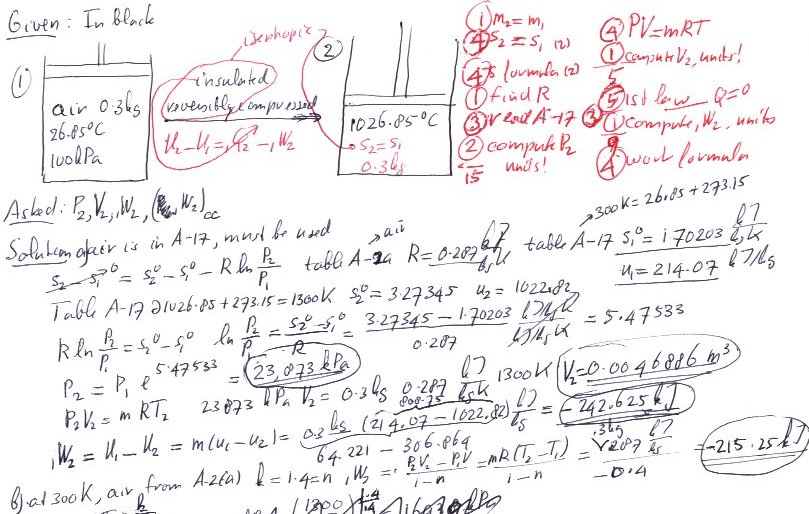 Given: In black
isentropic
①
air 0.3kg
26.85°C
100kPa
insulated
reversibly compressed
U2-U1=1Q2-1W2
②
1026.85°C
S2=S1
0.3kg
① m2=m1
④ S2=S1 (2)
④ S formula (2)
① find R
③ read A-17
② compute P2
units!
15
④ PV=mRT
① compute V2, units!
5
⑤ 1st law Q=0
③
① compute, W2, units
9
④ work formula
Asked: P2, V2, 1W2, (1W2)cc
300K=26.85+273.15
Solution: a) air is in A-17, must be used
S2-S1=S2°-S1°-R ln P2/P1 table A-2a air R=0.287 kJ/kgK table A-17 S1°=1.70203 kJ/kgK
u1=214.07 kJ/kg
Table A-17 @1026.85+273.15=1300K S2°=3.27345 u2=1022.82
R ln P2/P1=S2°-S1° ln P2/P1=(S2°-S1°)/R=(3.27345-1.70203)/0.287 kJ/kgK/kJ/kgK=5.47533
P2=P1 e^5.47533=23,873 kPa
P2V2=mRT2 23873 kPa V2=0.3kg 0.287 kJ/kgK 1300K V2=0.0046886 m³
1W2=U1-U2=m(u1-u2)=0.3kg (214.07-1022.82) kJ/kg=-242.625kJ
808.75
64.221-306.864
b) at 300K, air from A-2(a) k=1.4=n 1W2=(P2V2-P1V1)/(1-n)=mR(T2-T1)/(1-n)=.3kg .287 kJ/kg/-0.4=-215.25kJ